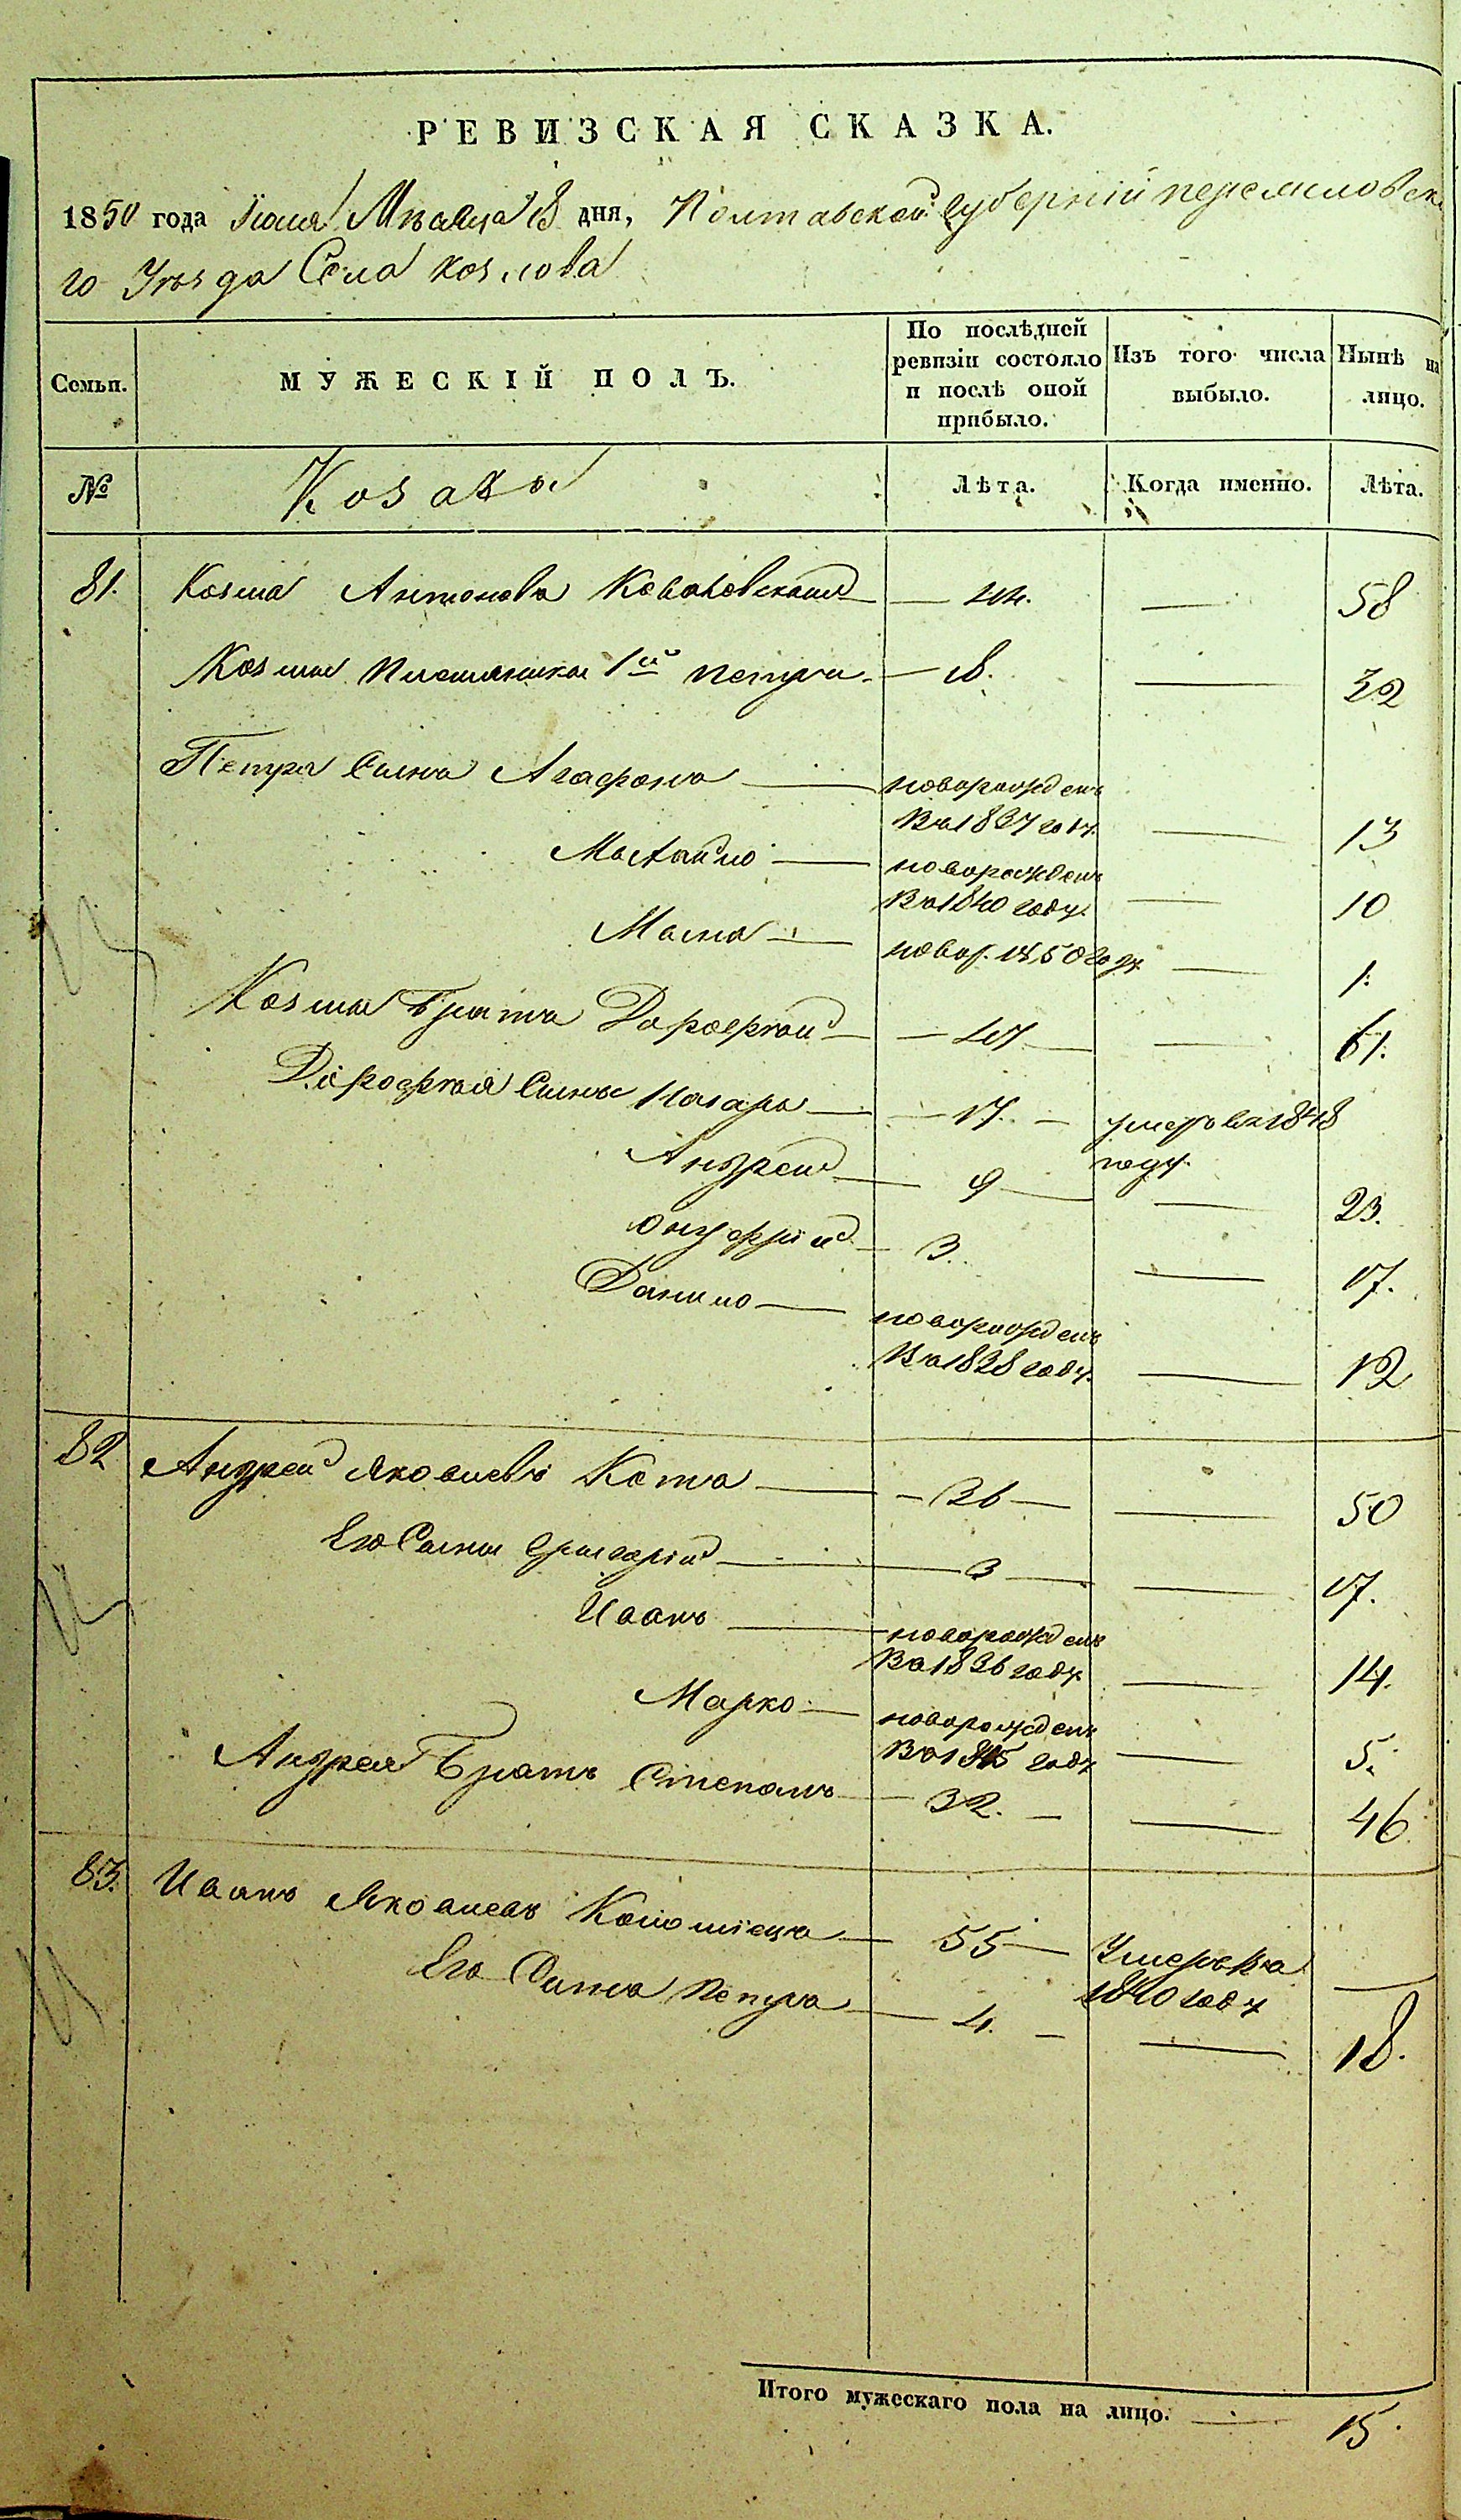 РЕВИЗСКАЯ СКАЗКА.
1850 года Мѣсяца 18 дня, Полтавской губерніи переяславска
го Уѣзда Села козлова
Семьи.
МУЖЕСКІЙ ПОЛЪ.
По послѣдней ревизіи состояло и послѣ оной прибыло.
Изъ того числа выбыло.
Нынѣ на лицо.
№
Козаки
Лѣта.
Когда именно.
Лѣта.
81. Козма Антоновъ — 44. — 58
Козмы племянникъ 1й петръ — 18. — 32
Петра Сынъ Агафонъ — новорожденъ
Въ 1837 году. — 13
новорожденъ
Въ 1840 году. — 10
— новор. 1850 году — 1.
Козмы братъ Дорофѣй — 47 — 61.
Дорофѣя Сыны Назаръ — 17. — умеръ въ 1848
году.
Андрей — 9 — 23.
Онуфрій — 3. — 17.
Данило — новорожденъ
Въ 1838 году. — 12
82 Андрей Яковлевъ Котъ — 36 — 50
Его Сыны Григорій — 3 — 17.
Иванъ — новорожденъ
Въ 1836 году — 14.
Марко — новорожденъ
Въ 1845 году — 5.
Андрея Братъ Степанъ — 32. — 46.
83. Иванъ Яковлевъ — 55 — Умеръ въ
1840 году —
Его Сынъ Петръ — 4. — 18.
Итого мужескаго пола на лицо. — 15.